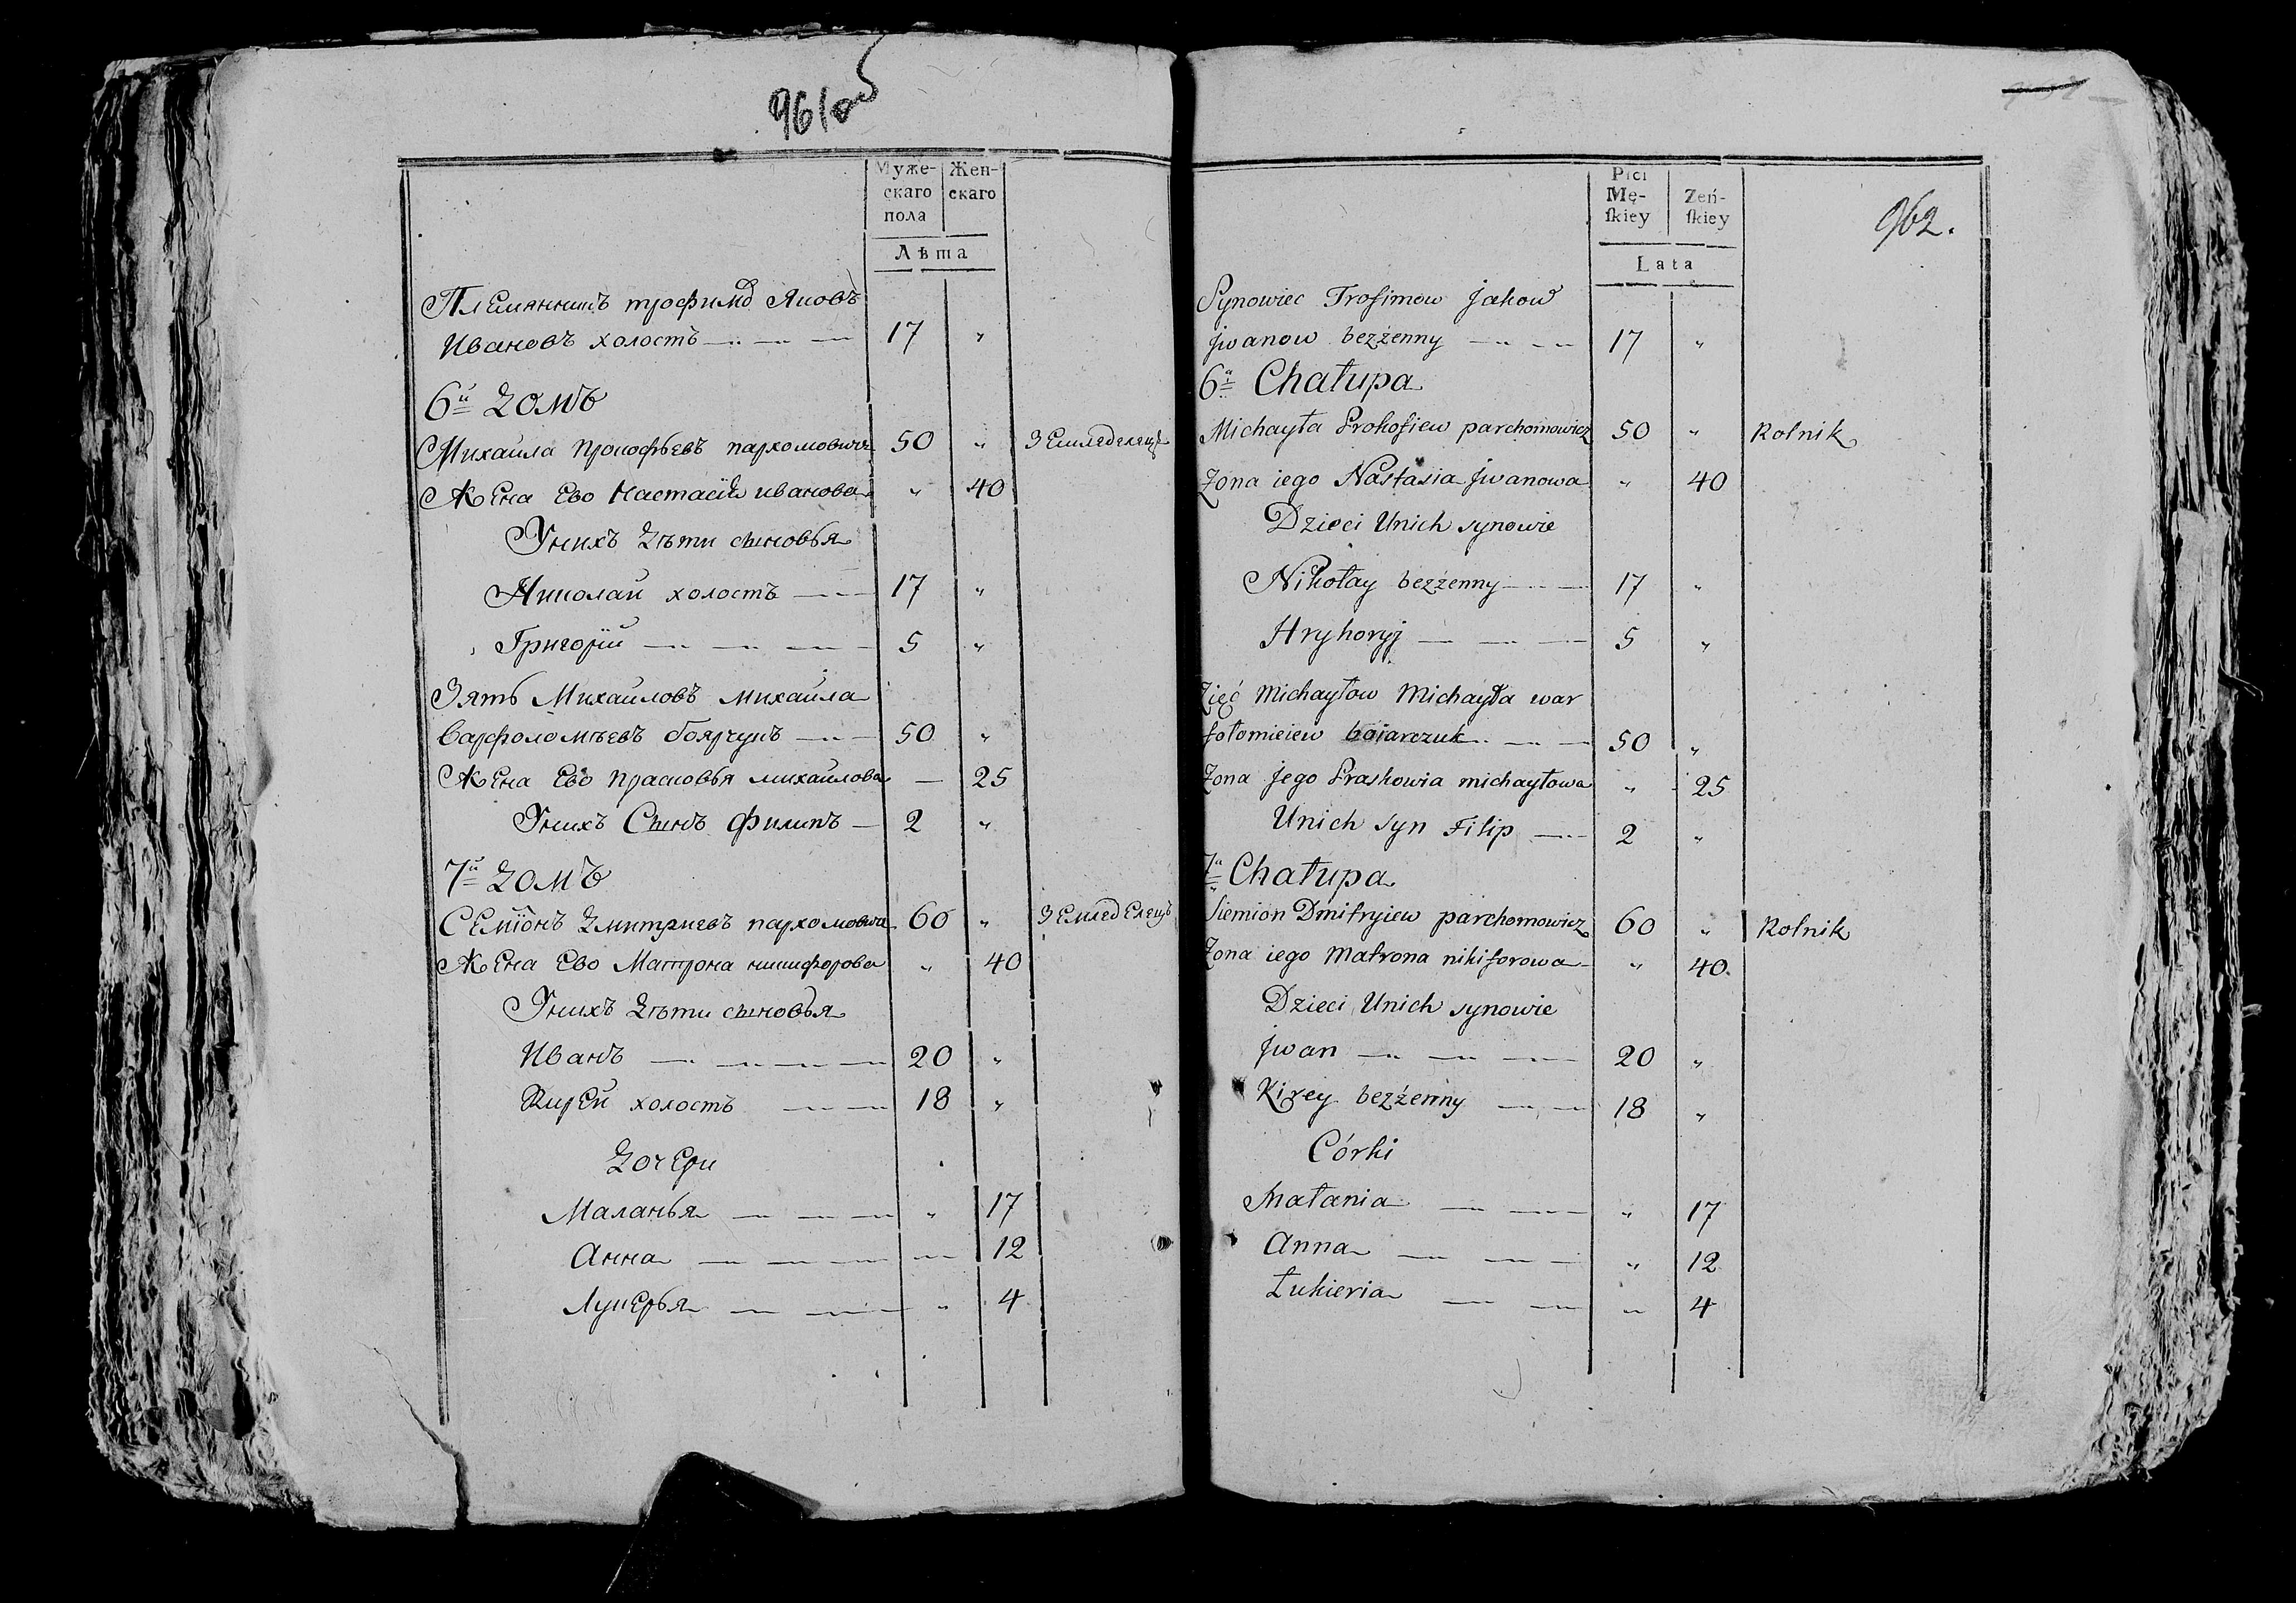 961об
Муже-
скаго
пола
Жен-
скаго
Лѣта
Племянникъ трофимѡ Яковъ
Ивановъ холостъ 17 "
6й домъ
Михаила прокофьевъ пархомовичъ 50 " Земледелецъ
Жена Ево Настасiя иванова " 40
Унихъ дѣти сыновья
Николай холостъ 17 "
Григорiй 5 "
Зять Михаиловъ михаила
варфоломѣевъ боярчукъ 50 "
Жена Ево прасковья михаилова — 25
Унихъ Сынъ филипъ 2 "
7й домъ
Семiонъ дмитриевъ пархомовичъ 60 " ЗемледЕлецъ
Жена Ево Матрона никифорова " 40
Унихъ дѣти сыновья
Иванъ 20 "
Кирей холостъ 18 "
дочери
Маланья " 17
Анна " 12
Лукерья " 4
962.
Płci
Mę-
ſkiey
Żeń-
ſkiey
Lata
Synowiec Trofimow Jakow
Jwanow bezżenny 17 "
6a Chałupa
Michayła Prokofiew parchomowicz 50 " Rolnik
Żona iego Nastasia Jwanowa " 40
Dzieci Unich synowie
Nikołay bezżenny 17 "
Hryhoryj 5 "
Zięć Michayłow Michayła war
fołomieiew boiarczuk 50 "
Żona Jego Praskowia michayłowa " 25
Unich syn Filip 2 "
7a Chałupa
Siemion Dmitryiew parchomowicz 60 " Rolnik
Żona iego Matrona nikiforowa " 40
Dzieci Unich synowie
Jwan 20 "
Kirey bezżenny 18 "
Córki
Małania " 17
Anna " 12
Łukieria " 4